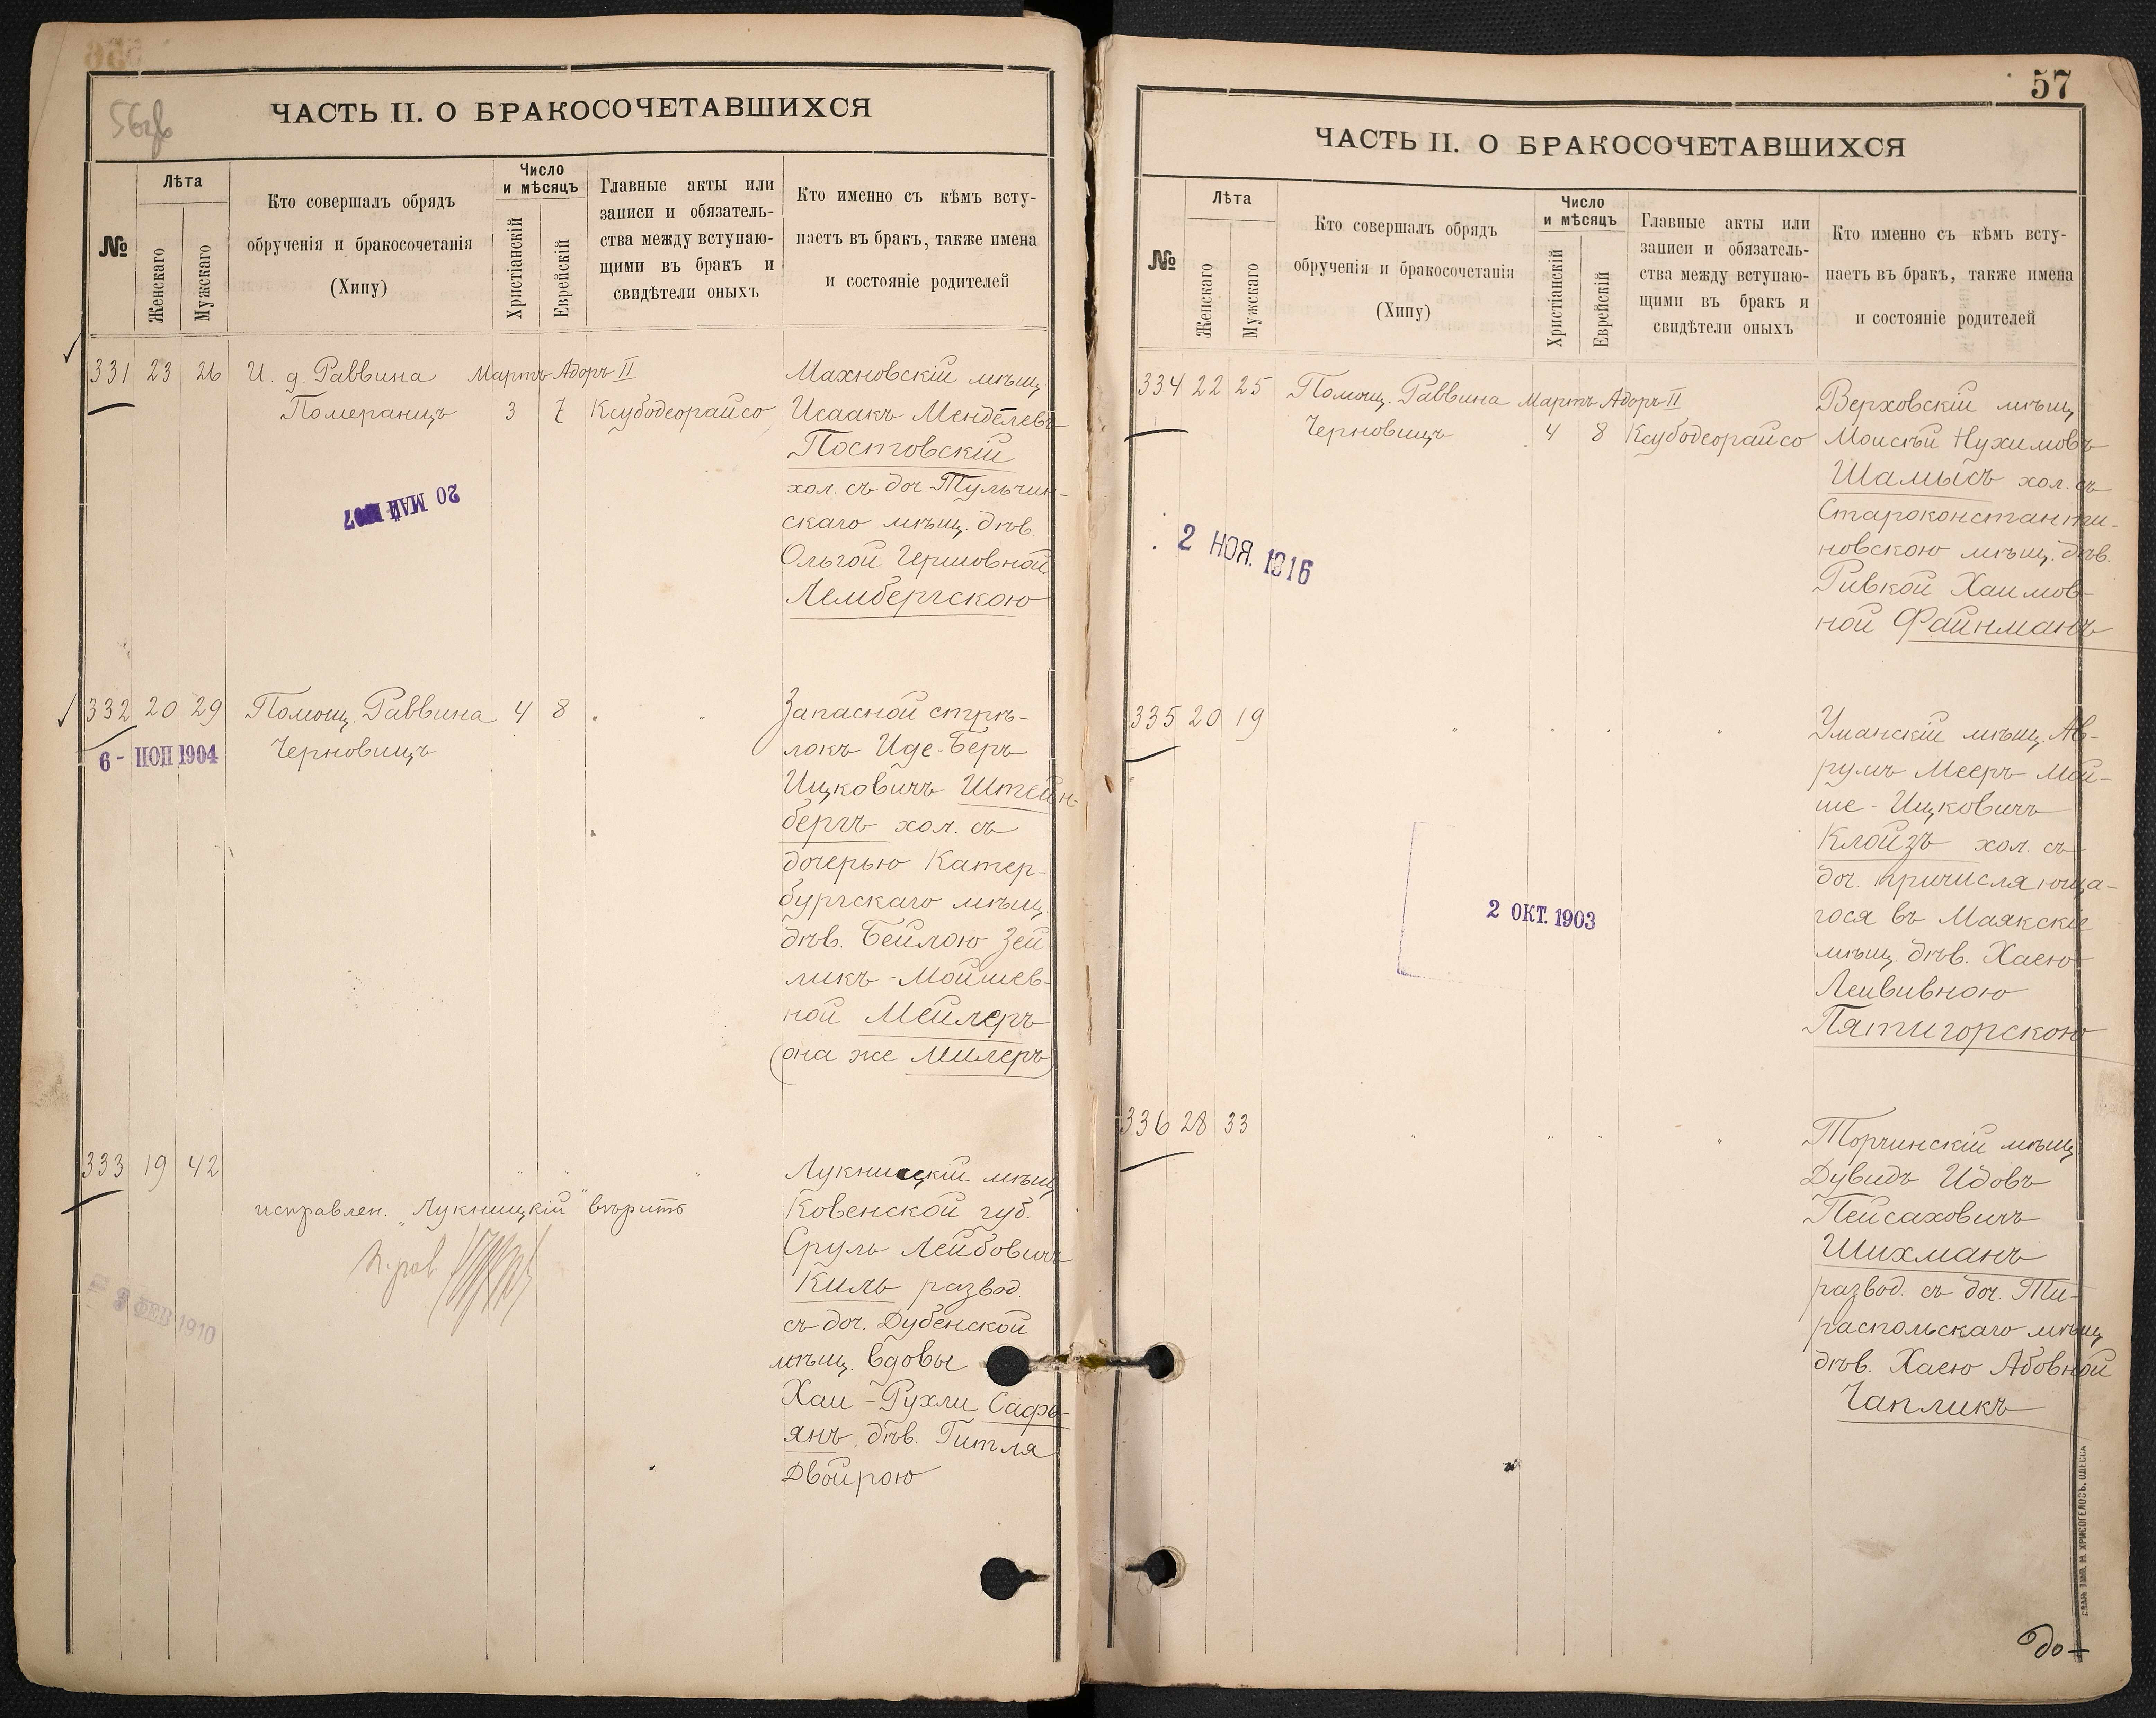 56об
ЧАСТЬ II. О БРАКОСОЧЕТАВШИХСЯ
№
Лѣта
Женскаго
Мужскаго
Кто совершалъ обрядъ
обрученія и бракосочетанія
(Хипу)
Число
и мѣсяцъ
Христіанскій
Еврейскій
Главные акты или
записи и обязатель-
ства между вступаю-
щими въ бракъ и
свидѣтели оныхъ
Кто именно съ кѣмъ всту-
паетъ въ бракъ, также имена
и состояніе родителей
331 23 26 И. д. Раввина Мартъ Адоръ II
Померанцъ 3 7 Ксубодеорайсо
Махновскій мѣщ.
Исаакъ Менделевъ
Постовскій
хол. съ доч. Тульчин-
скаго мѣщ. дѣв.
Ольгой Гершовной
Лембергскою
20 МАЙ
332 20 29 Помощ. Раввина 4 8 " "
Черновицъ
6 - 1904
Запасной стрѣ-
локъ Иде-Беръ
Ицковичъ Штейн-
бергъ хол. съ
дочерью Катер-
бургскаго мѣщ.
дѣв. Бейлою Зей
ликъ-Мойшев-
ной Мейлеръ
(она же Милеръ)
333 19 42 " " "
исправлен. „Лукницкій" вѣрить
п. рав.
ФЕВ 1910
Лукницкій мѣщ.
Ковенской губ.
Сруль Лейбовичъ
Киль развод.
съ доч. Дубенской
мѣщ. вдовы
Хаи-Рухли Сафь-
янъ, дѣв. Гитля
Двойрою
57
ЧАСТЬ II. О БРАКОСОЧЕТАВШИХСЯ
№
Лѣта
Женскаго
Мужскаго
Кто совершалъ обрядъ
обрученія и бракосочетанія
(Хипу)
Число
и мѣсяцъ
Христіанскій
Еврейскій
Главные акты или
записи и обязатель-
ства между вступаю-
щими въ бракъ и
свидѣтели оныхъ
Кто именно съ кѣмъ всту-
паетъ въ бракъ, также имена
и состояніе родителей
334 22 25 Помощ. Раввина Мартъ Адоръ II
Черновицъ 4 8 Ксубодеорайсо
Верховскій мѣщ.
Моисѣй Нухимовъ
Шамысъ хол. съ
Староконстанти-
новскою мѣщ. дѣв.
Ривкой Хаимов-
ной Файнманъ
2 НОЯ. 1916
335 20 19 " " " "
Уманскій мѣщ. Ав-
румъ Мееръ Мой-
ше-Ицковичъ
Клойзъ хол. съ
доч. причисляюща-
гося въ Маякскіе
мѣщ. дѣв. Хаею
Лейвивною
Пятигорскою
2 ОКТ. 1903
336 28 33 " " " "
Торчинскій мѣщ
Дувидъ Идовъ
Пейсаховичъ
Шихманъ
развод. съ доч. Ти-
распольскаго мѣщ
дѣв. Хаею Абовной
Чапликъ
М. ХРИСОГЕЛОСЪ. ОДЕССА
до-